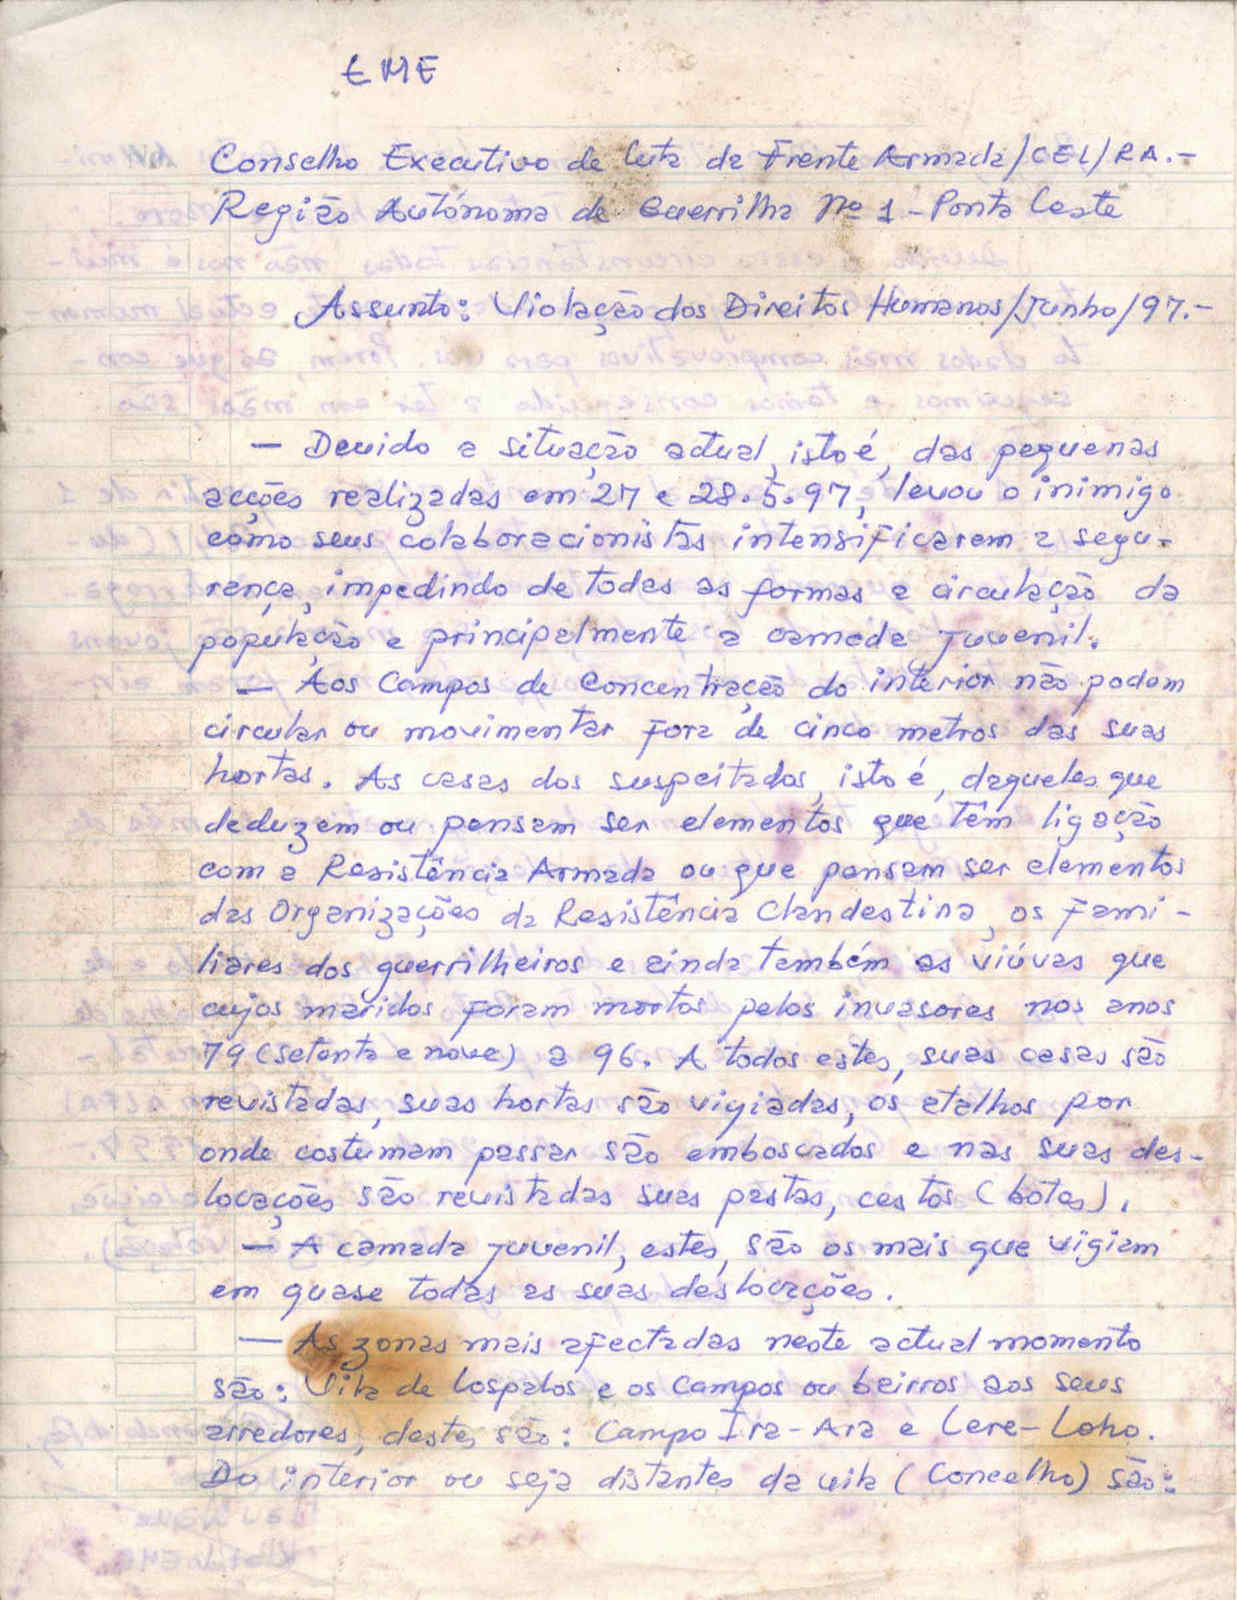 EME
Conselho Executivo de Luta da Frente Armada/CEL/RA.-
Região Autónoma de Guerrilha Nº 1 - Ponta Leste
Assunto: Violação dos Direitos Humanos/Junho/97.-
— Devido a situação actual, isto é, das pequenas
acções realizadas em 27 e 28.5.97, levou o inimigo
como seus colaboracionistas intensificarem a segu-
rança, impedindo de todas as formas a circulação da
população e principalmente a camada juvenil.
— Aos Campos de Concentração do interior não podem
circular ou movimentar fora de cinco metros das suas
hortas. As casas dos suspeitados, isto é, daqueles que
deduzem ou pensam ser elementos que têm ligação
com a Resistência Armada ou que pensam ser elementos
das Organizações da Resistência Clandestina, os fami-
liares dos guerrilheiros e ainda também as viúvas que
cujos maridos foram mortos pelos invasores nos anos
79 (setenta e nove) a 96. A todos estes, suas casas são
revistadas, suas hortas são vigiadas, os atalhos por
onde costumam passar são emboscados e nas suas des-
locações são revistadas suas pastas, cestos (botes).
— A camada juvenil, estes, são os mais que vigiam
em quase todas as suas deslocações.
— As zonas mais afectadas neste actual momento
são: Vila de Lospalos e os campos ou bairros aos seus
arredores, destes são: Campo Ira-Ara e Lere-Loho.
Do interior ou seja distantes da vila (Concelho) são: